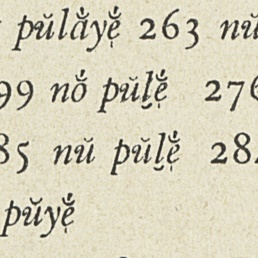 pŭlȧ́yẹ̇́ 263 nŭ
99 nȯ́ pŭl̮ẹ̇́ 276
85 nŭ pŭl̮ẹ̇́ 28
pŭyẹ̇́